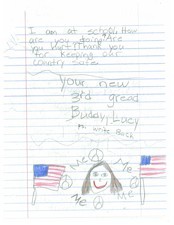 I am at school. How
are you doing Are
you Hurt? Thank you
for Keeping our
Country Safe.
your new
3rd gread
Buddy, Lucy
write Back
Me
Me
Me
Me